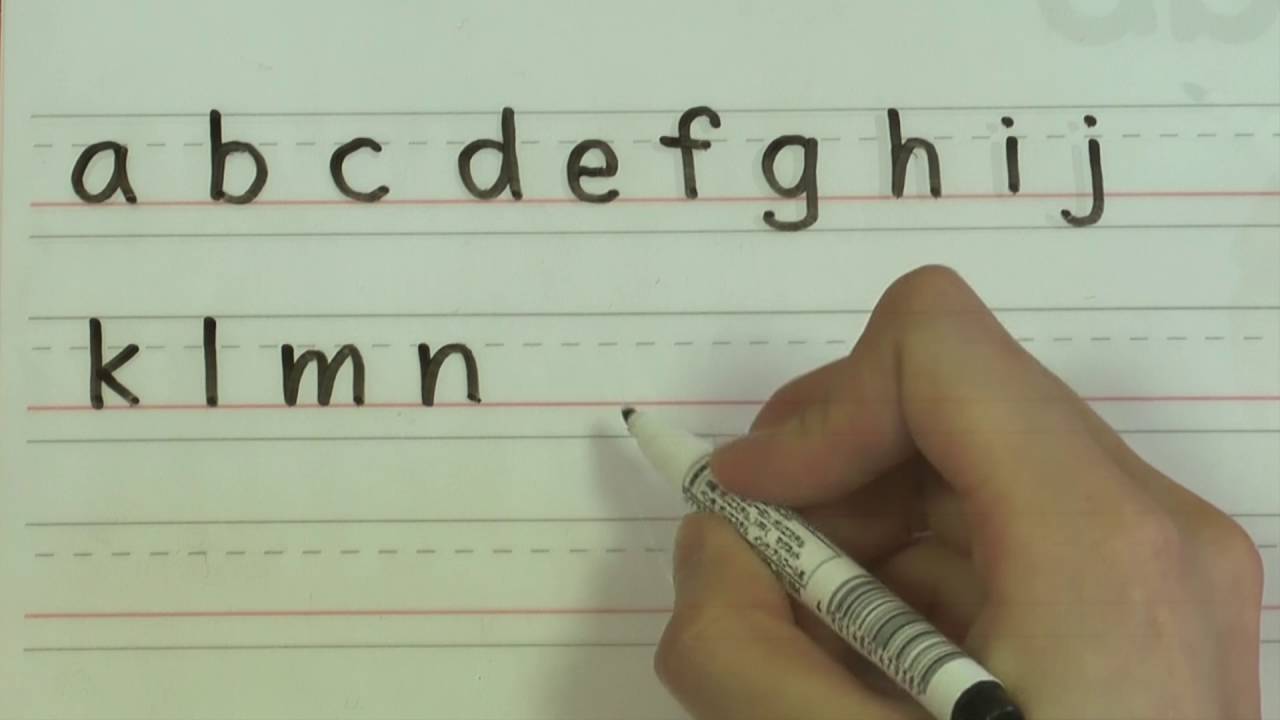 a b c d e f g h i j
k l m n